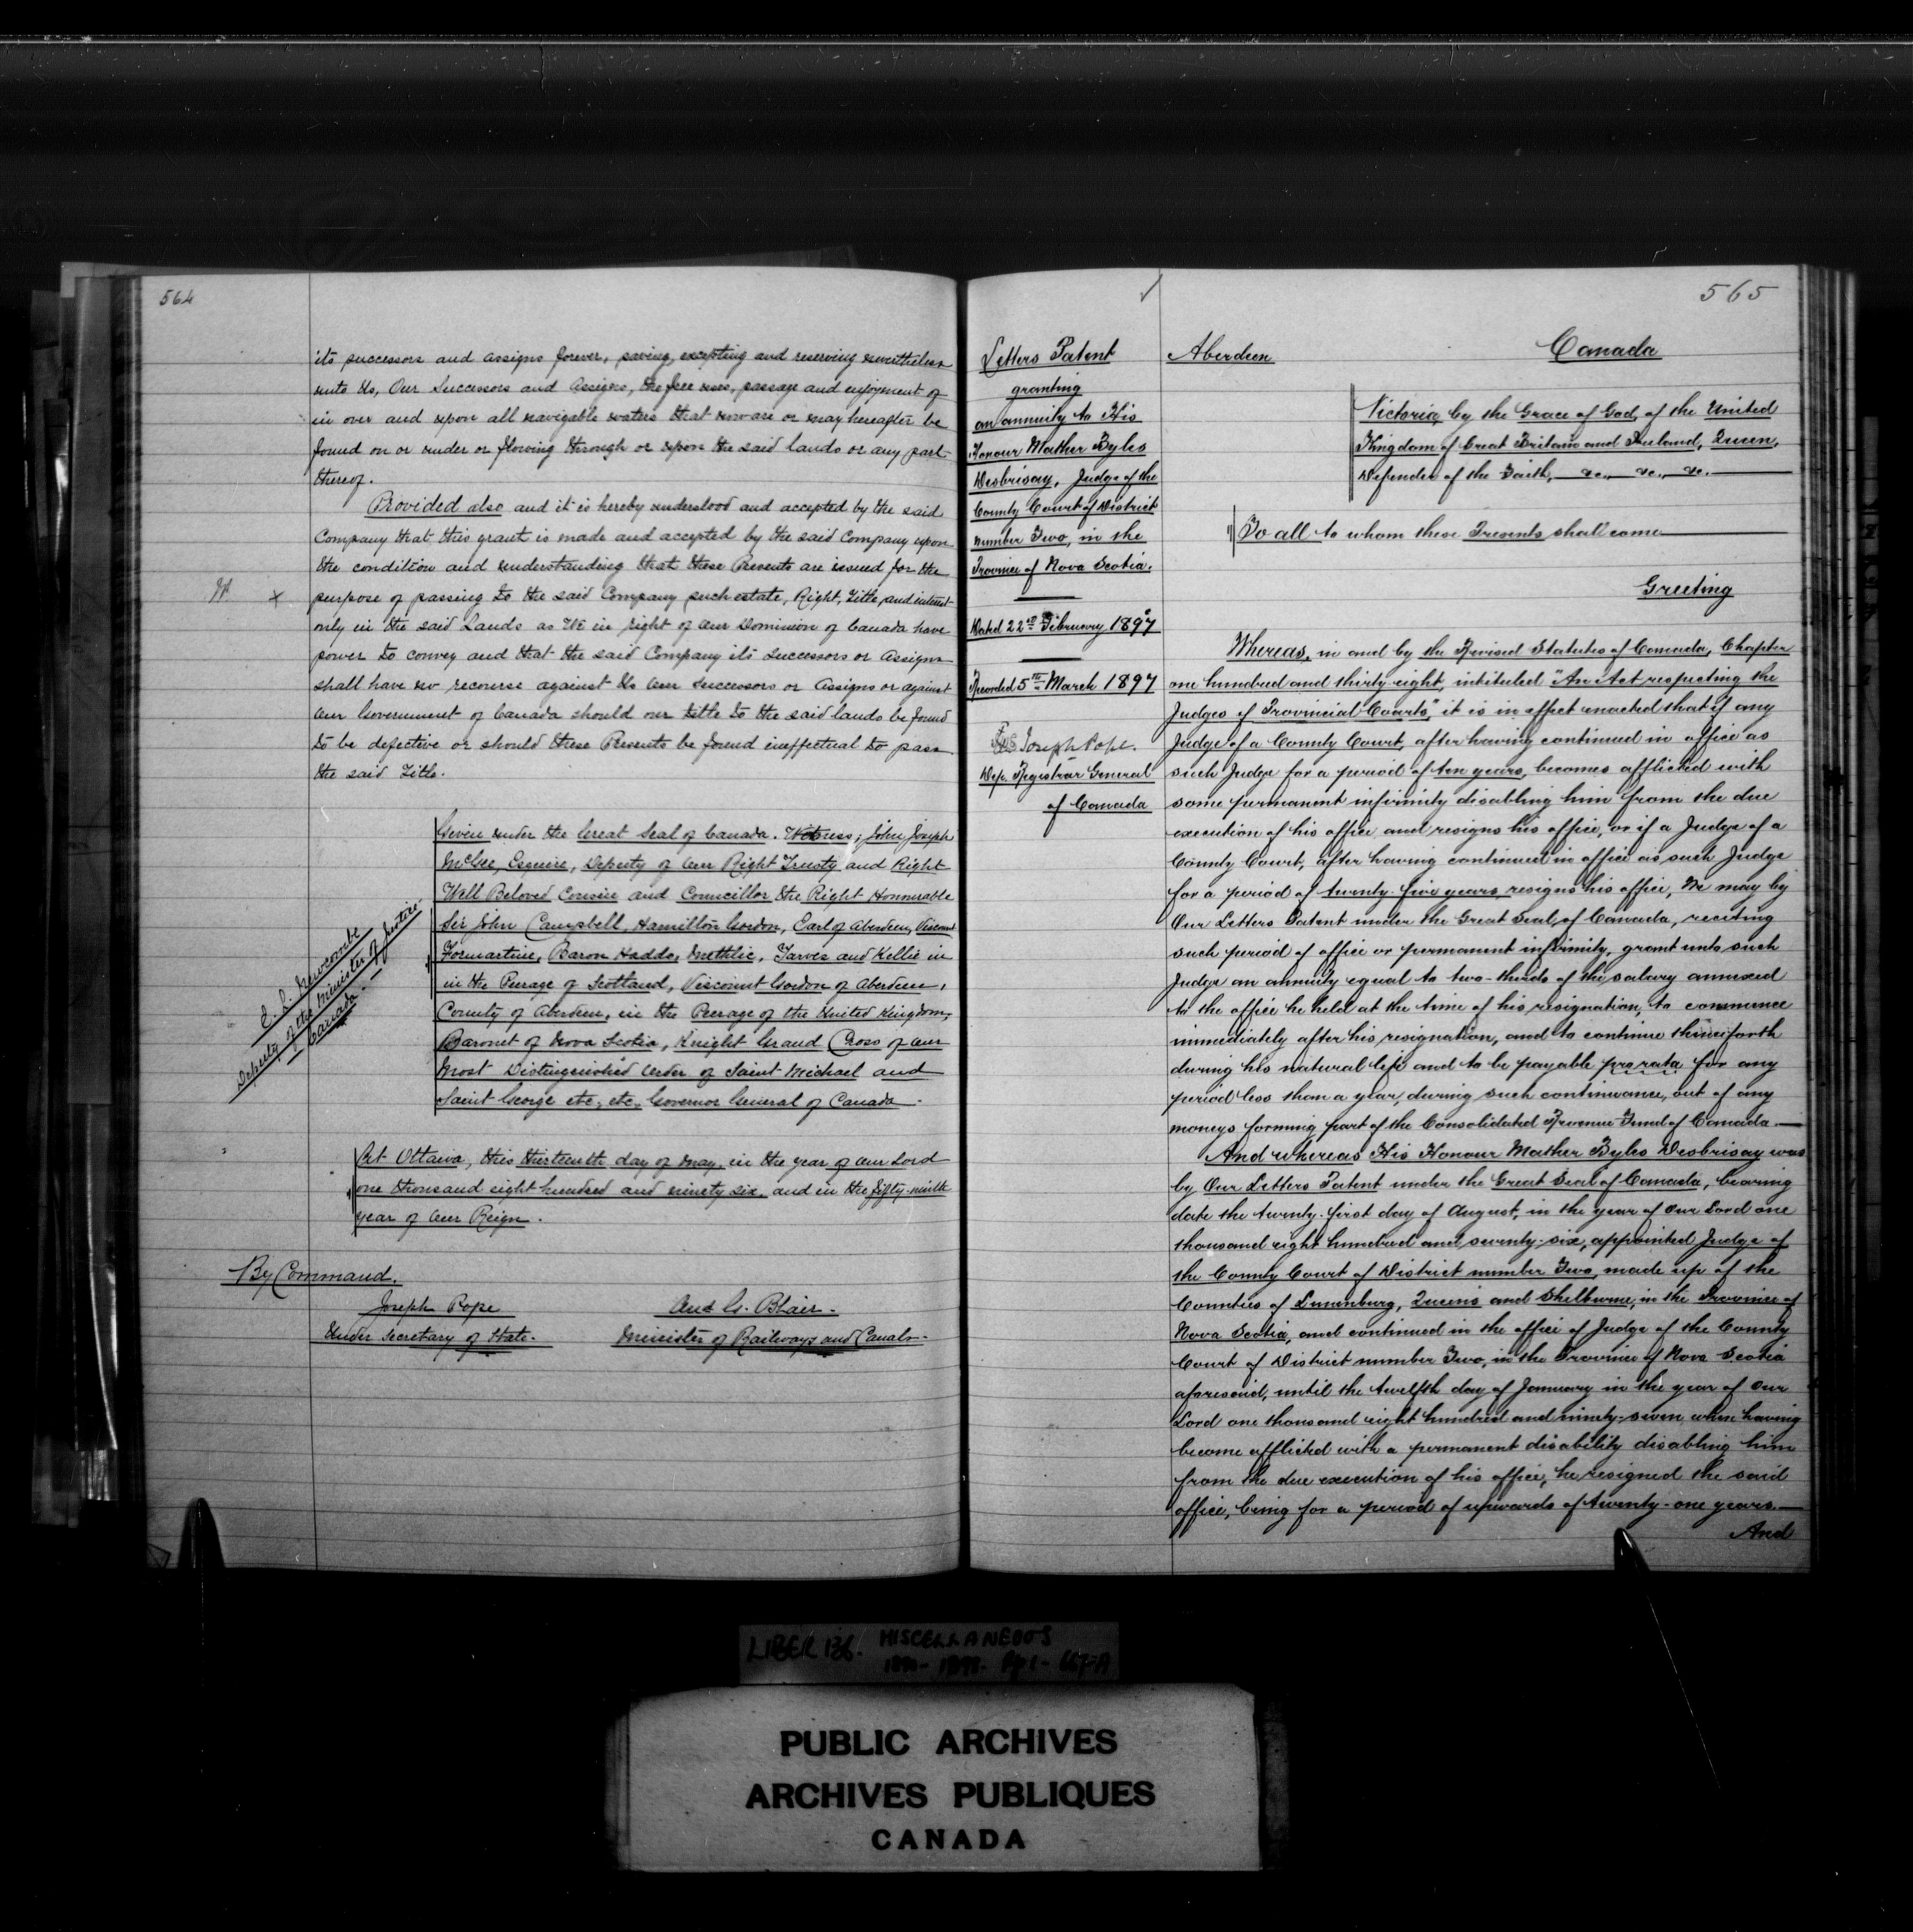 564
its successors and assigns forever, saving, excepting and reserving nevertheless
unto Us, Our Successors and Assigns, the free uses, passage and enjoyment of
in over and upon all navigable waters that now are or may hereafter be
found on or under or flowing through or upon the said lands or any part
thereof.
Provided also and it is hereby understood and accepted by the said
Company that this grant is made and accepted by the said Company upon
the condition and understanding that these Presents are issued for the
purpose of passing to the said Company such estate, Right, Title, and interest
only in the said Lands as We in right of Our Dominion of Canada have
power to convey and that the said Company its Successors or Assigns
shall have no recourse against Us Our Successors or Assigns or against
Our Government of Canada should our title to the said lands be found
to be defective or should these Presents be found ineffectual to pass
the said Title.
Given under the Great Seal of Canada. Witness, John Joseph
McGee, Esquire, Deputy of Our Right Trusty and Right
Well Beloved Cousin and Councillor the Right Honourable
Sir John Campbell, Hamilton Gordon, Earl of Aberdeen, Viscount
Formartine, Baron Haddo, Methlic, Tarves and Kellie in
in the Peerage of Scotland, Viscount Gordon of Aberdeen,
County of Aberdeen, in the Peerage of the United Kingdom,
Baronet of Nova Scotia, Knight Grand Cross of Our
Most Distinguished Order of Saint Michael and
Saint George etc, etc, Governor General of Canada.
E. L. Newcombe
Deputy of the Minister of Justice
Canada.
At Ottawa, this thirteenth day of May, in the year of Our Lord
one thousand eight hundred and ninety six, and in the fifty-ninth
year of Our Reign.
By Command.
Joseph Pope
Under Secretary of State.
And G. Blair.
Minister of Railways and Canals.
565
Letters Patent
granting
an annuity to His
Honour Mather Byles
Desbrisay, Judge of the
County Court of District
number Two, in the
Province of Nova Scotia.
Dated 22nd February 1897
Recorded 5th March 1897
Joseph Pope.
Dep. Registrar General
of Canada
Aberdeen
Canada
Victoria, by the Grace of God, of the United
Kingdom of Great Britain and Ireland, Queen,
Defender of the Faith, &c., &c., &c.
To all to whom these Presents shall come
Greeting
Whereas, in and by the Revised Statutes of Canada, Chapter
one hundred and thirty-eight, intituled "An Act respecting the
Judges of Provincial Courts," it is in effect enacted that if any
Judge of a County Court, after having continued in office as
such Judge for a period of ten years, becomes afflicted with
some permanent infirmity disabling him from the due
execution of his office and resigns his office, or if a Judge of a
County Court, after having continued in office as such Judge
for a period of twenty-five years, resigns his office, We may by
Our Letters Patent under the Great Seal of Canada, reciting
such period of office or permanent infirmity, grant unto such
Judge an annuity equal to two-thirds of the salary annexed
to the office he held at the time of his resignation, to commence
immediately after his resignation, and to continue thenceforth
during his natural life and to be payable pro rata for any
period less than a year, during such continuance, out of any
moneys forming part of the Consolidated Revenue Fund of Canada.
And whereas His Honour Mather Byles Desbrisay was
by Our Letters Patent under the Great Seal of Canada, bearing
date the twenty-first day of August, in the year of Our Lord one
thousand eight hundred and seventy-six, appointed Judge of
the County Court of District number Two, made up of the
Counties of Lunenburg, Queens and Shelburne, in the Province of
Nova Scotia, and continued in the office of Judge of the County
Court of District number Two, in the Province of Nova Scotia
aforesaid, until the twelfth day of January in the year of Our
Lord one thousand eight hundred and ninety-seven when having
become afflicted with a permanent disability disabling him
from the due execution of his office, he resigned the said
office, being for a period of upwards of twenty-one years.
And
LIBER 136. MISCELLANEOUS
PUBLIC ARCHIVES
ARCHIVES PUBLIQUES
CANADA